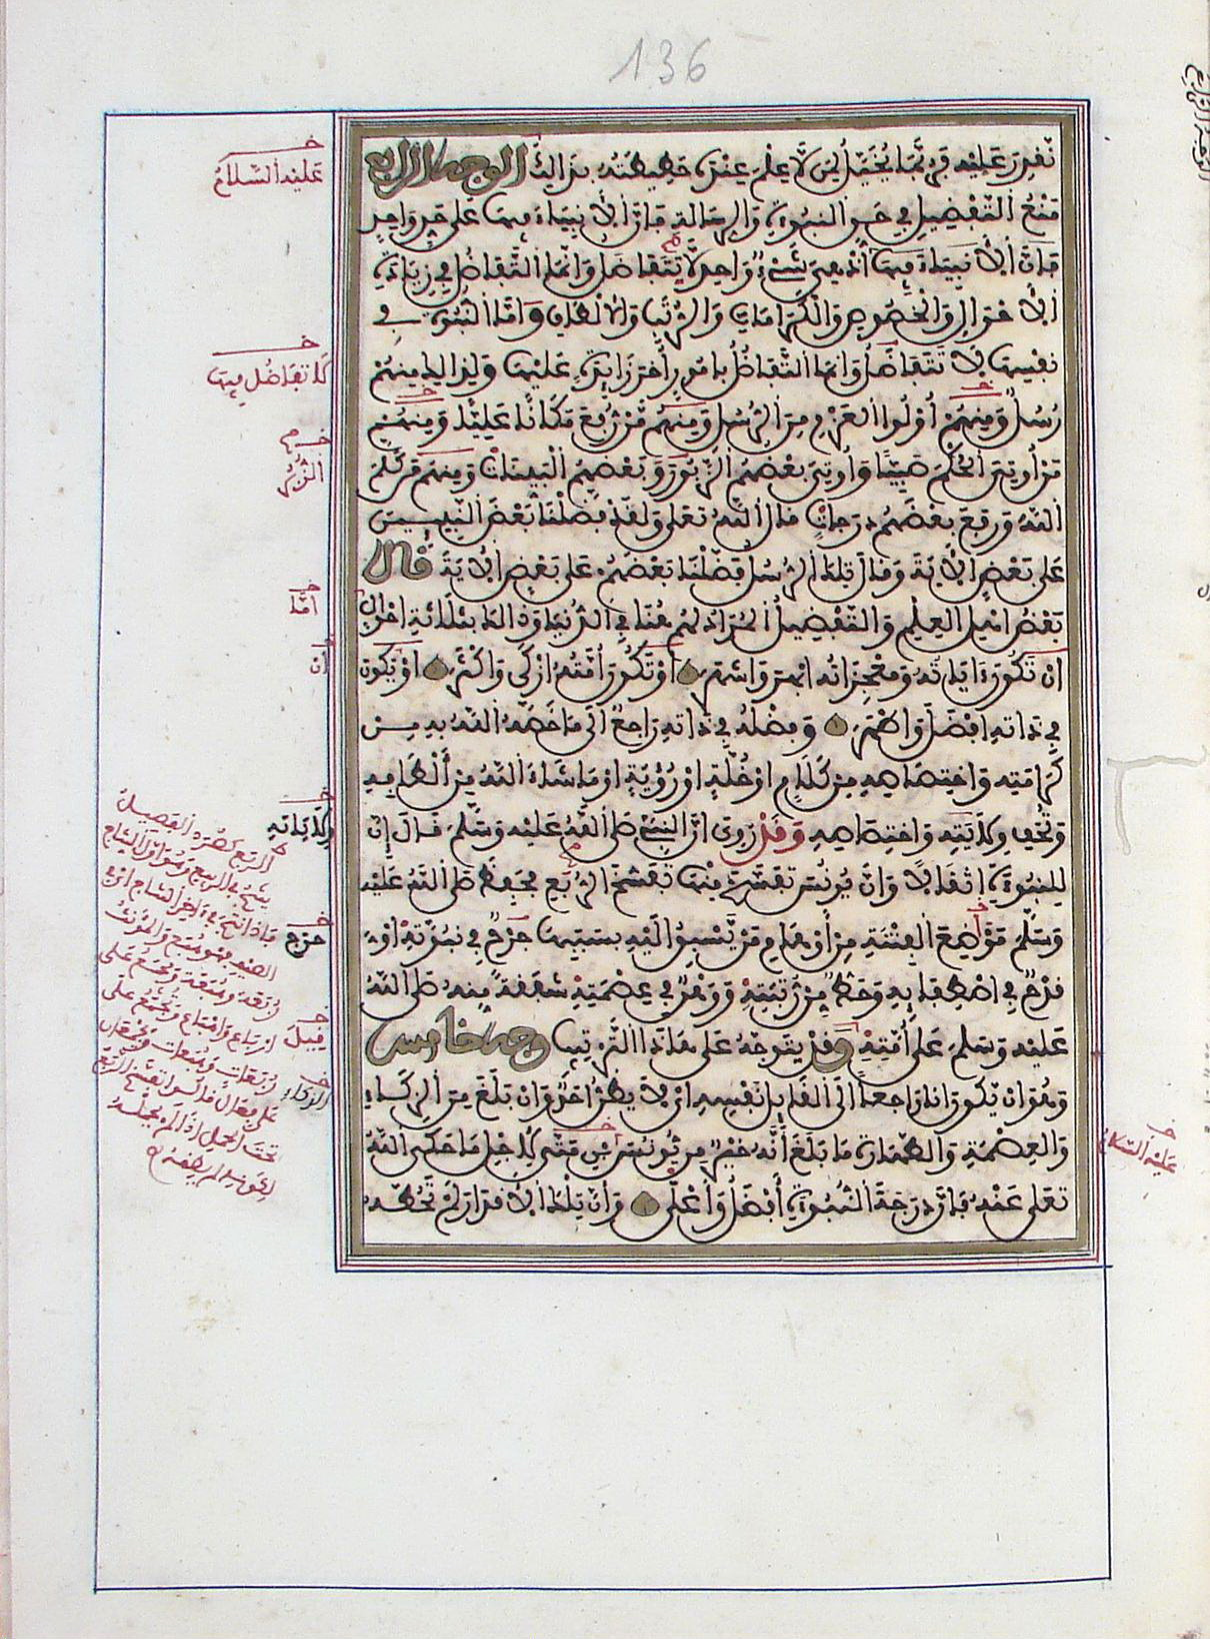 136
نقدر عليه فربما يخيل لمن لا علم عنده حطيطته بذالك الوجه الرابع
منع التفضيل في حق النبوة والرسالة فان الانبياء فيها على حد واحد
فان الانبياء فيها اذ هي شيء واحد لا تتفاضل وانما التفاضل في زيادة
الاحوال والخصوص والكرامات والرتب والالطاف واما النبوة في
نفسها فلا تتفاضل وانما التفاضل بامور اخر زايدة عليها ولذالك منهم
رسل ومنهم اولوا العزم من الرسل ومنهم من رفع مكانا عليا ومنهم
من اوتي الحكم صبيا واوتي بعضهم الزبور وبعضهم البينات ومنهم من كلم
الله ورفع بعضهم درجات قال الله تعلى ولقد فضلنا بعض النبيين
على بعض الاية وقال تلك الرسل فضلنا بعضهم على بعض الاية قال
بعض اهل العلم والتفضيل المراد لهم هنا في الدنيا وذالك بثلاثة احوال
ان تكون ءاياته ومعجزاته ابهر واشهر او تكون امته ازكى واكثر او يكون
في ذاته افضل واطهر وفضله في ذاته راجع الى ما خصه الله به من
كرامته واختصاصه من كلام او خلة او رؤية او ما شاء الله من الطافه
وتحف ولايته واختصاصه وقد روي ان النبيء صلى الله عليه وسلم قال ان
للنبوة اثقالا وان يونس تفسخ منها تفسخ الربع فحفظ صلى الله عليه
وسلم مواضع الفتنة من اوهام من يسبق اليه بسببها جرح في نبوته او
قدح في اصطفايه وحط من رتبته ووهن في عصمته شفقة منه صلى الله
عليه وسلم على امته وقد يتوجه على هاذا الترتيب وجه خامس
وهو ان يكون انا راجعا الى القايل نفسه اي لا يظن احد وان بلغ من الذكاء
والعصمة والطهارة ما بلغ انه خير من يونس بن متى لاجل ما حكى الله
تعلى عنه فان درجة النبوة افضل واعلى وان تلك الاقدار لم تحطه
عليه السلام
لا تفاضل فيها
الزبر
اما
ان
وكذاته
حرج
قيل
الذكاء
عليه السلام
الربع كصرد الفصيل
ينتج في الربيع وهو اول النتاج
فاذا نتج في ءاخر النتاج اي في
الصيف فهو هبع والمؤنث
ربعة وهبعة ويجمع على
ارباع واهباع وتجمع على
ربعات وهبعات